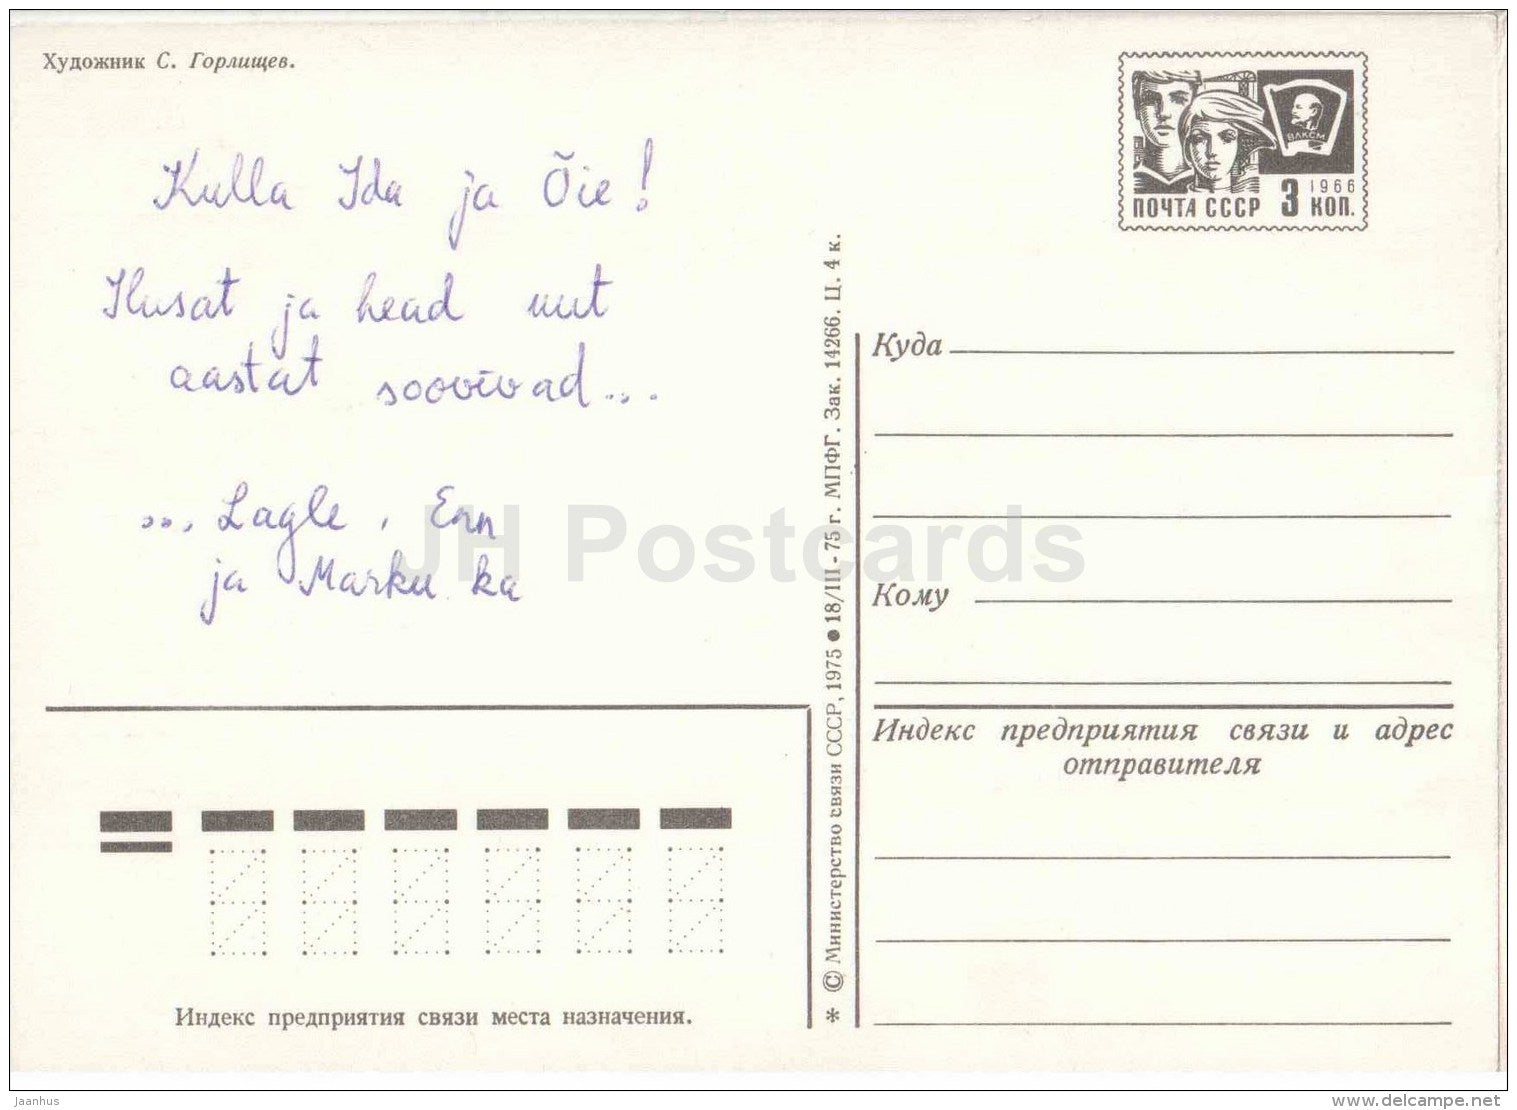 Художник С. Горлищев.
Kulla Ida ja Õie!
Ilusat ja head uut
aastat soovivad...
..., Lagle, Enn
ja Marku ka
Индекс предприятия связи места назначения.
* © Министерство связи СССР, 1975 ● 18/III-75 г. МПФГ. Зак. 14266. Ц. 4 к.
ВЛКСМ
1966
ПОЧТА СССР 3 КОП.
Куда
Кому
Индекс предприятия связи и адрес
отправителя
JH Postcards
Jaanhus
www.delcampe.net